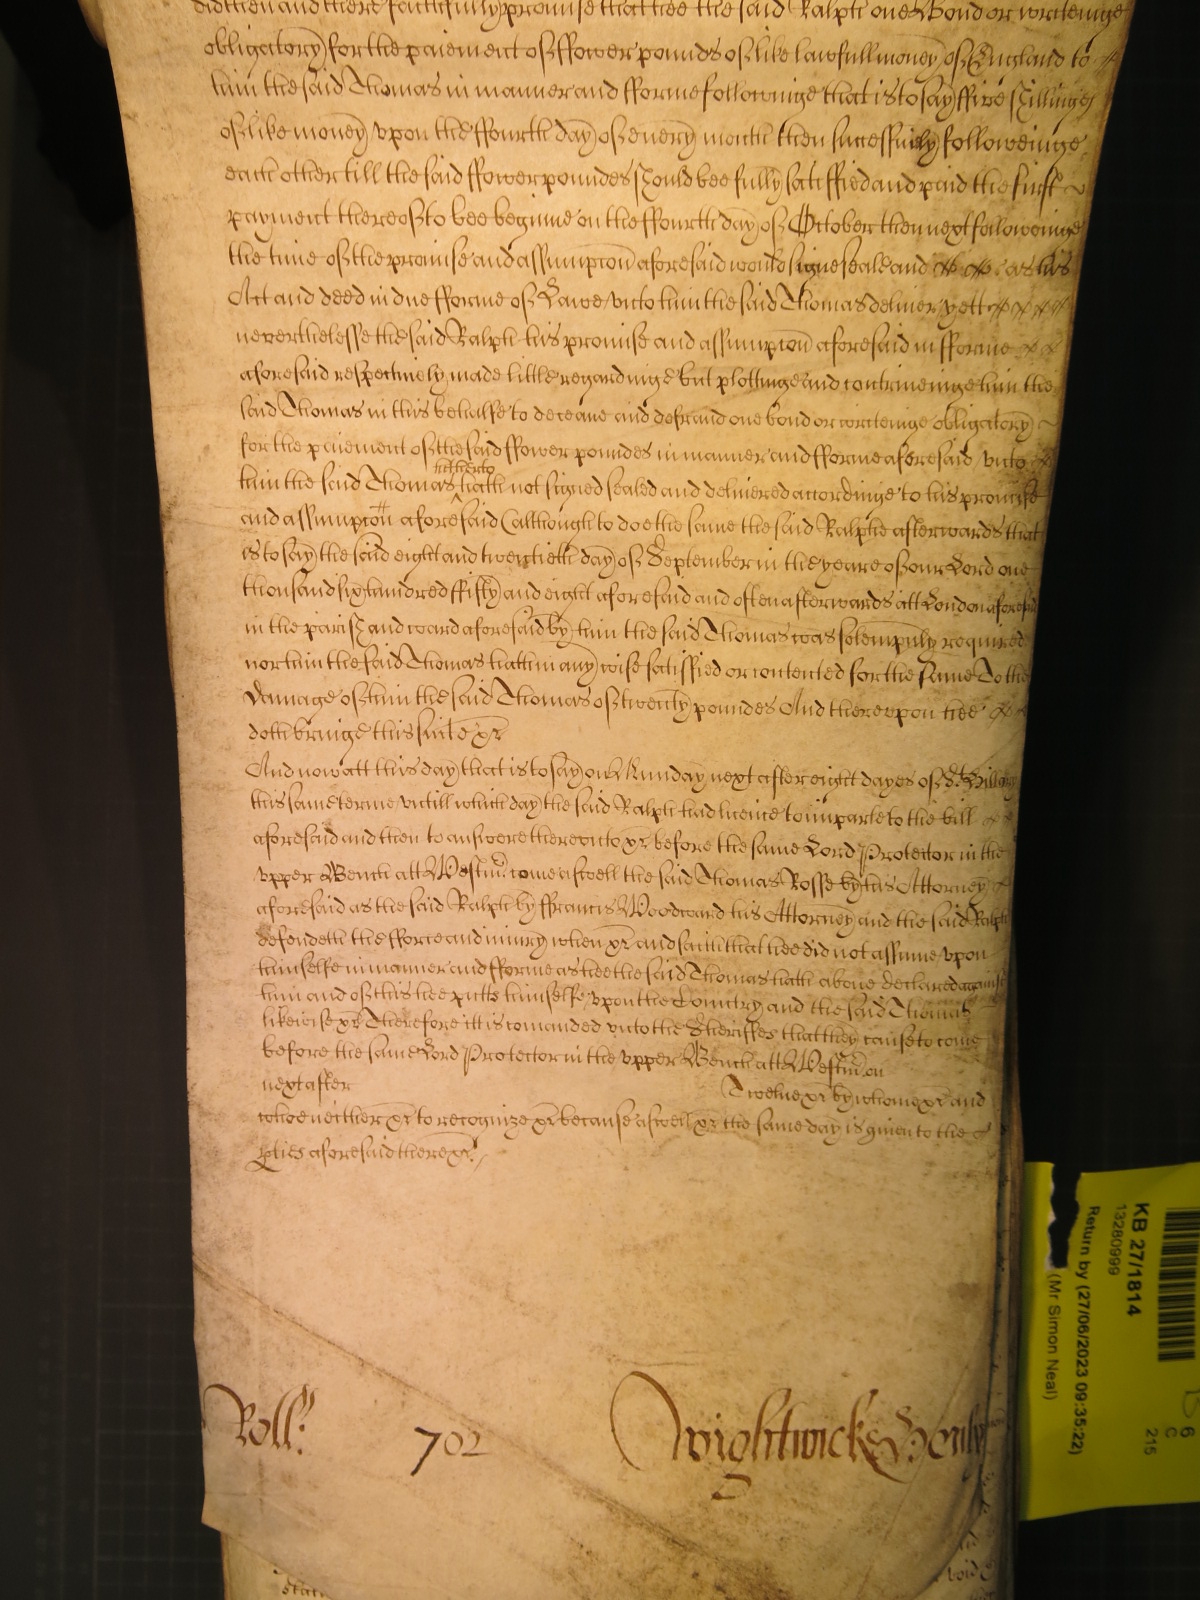 did then and there faithfully promise that hee the said Ralph one Bond or writeinge
obligatory for the paiement of ffower pounds of like lawfull money of England to
him the said Thomas in manner and fforme followinge that is to say ffive Shillinges
of like money vpon the ffourth day of euery month then successiuely followeinge
each other till the said ffower poundes should bee fully satisffied and paid the first
payment thereof to bee begunne on the ffourth day of October then next followeinge
the time of the promise and assumpcon aforesaid would signe seale and as his
Act and deed in due fforme of Lawe vnto him the said Thomas deliuer yett
neverthelesse the said Ralph his promise and assumpcon aforesaid in fforme
aforesaid respectiuely made little regardinge but plottinge and contriueinge him the
said Thomas in this behalfe to deceaue and defraud one bond or writeinge obligatory
for the paiement of the said ffower poundes in manner and fforme aforesaid vnto
hitherto
him the said Thomas hath not signed sealed and deliuered accordinge to his promise
and assumpcon aforesaid (although to doe the same the said Ralphe afterwards that
is to say the said eight and twentieth day of September in the yeare of our Lord one
thousand six hundred ffifty and eight aforesaid and often afterwards att London aforesaid
in the parish and ward aforesaid by him the said Thomas was solempnly required
nor him the said Thomas hath in any wise satisfied or contented for the same To the
damage of him the said Thomas of twenty poundes And therevpon hee
doth bringe this suite &c
And now att this day that is to say on Munday next after eight dayes of St Hillary
this same terme vntill which day the said Ralph had licence to imparle to the bill
aforesaid and then to answere therevnto &c before the same Lord Protector in the
vpper Bench att Westmr come aswell the said Thomas Rosse by his Attorney
aforesaid as the said Ralph by ffrancis Woodward his Attorney and the said Ralph
defendeth the fforce and iniury when &c and saith that hee did not assume vpon
himselfe in manner and fforme as hee the said Thomas hath aboue declared against
him and of this hee putts himselfe vpon the Country and the said Thomas
likewise &c Therefore itt is comanded vnto the Sheriffes that they cause to come
before the same Lord Protector in the vpper Bench att Westmr on
next after Twelue &c by whome &c and
whoe neither &c to recognize &c because aswell &c the same day is giuen to the
pties aforesaid there &c
Roll: 702 Wightwicke &
KB 27/1814
13280999
Return by (27/06/2023 09:35:22)
(Mr Simon Neal)
C
215